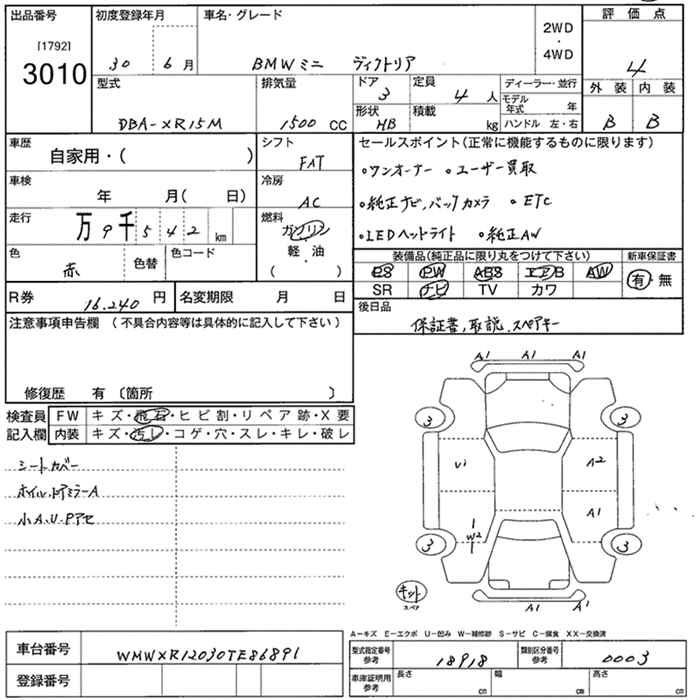 出品番号 初度登録年月 車名・グレード 評価点
[1792]
3010
30 6月 BMWミニ ヴィクトリア
2WD
・
4WD
4
型式 排気量 ドア 定員 ディーラー・並行 外装 内装
3 4人 モデル年式 年
DBA-XR15M 1500 CC 形状 HB 積載 kg ハンドル 左・右 B B
車歴 シフト セールスポイント(正常に機能するものに限ります)
自家用・( ) FAT
・ワンオーナー ・ユーザー買取
車検 冷房
年 月( 日) AC
・純正ナビ,バックカメラ ・ETC
走行 燃料
万9千542km ガソリン
・LEDヘッドライト ・純正AW
色 色替 色コード 軽・油
赤 ( )
装備品(純正品に限り丸をつけて下さい) 新車保証書
PS PW ABS エアB AW 有・無
SR ナビ TV カワ
R券 16.240円 名変期限 月 日
後日品
保証書,取説,スペアキー
注意事項申告欄(不具合内容等は具体的に記入して下さい)
修復歴 有〔箇所 〕
検査員 FW キズ・飛石・ヒビ割・リペア跡・X要
記入欄 内装 キズ・汚レ・コゲ・穴・スレ・キレ・破レ
シートカバー
ホイル,ドアミラーA
小A.U.Pアセ
A1 A1 A1
3 3
U1 A2
A1
W2
3 3
キット
スペア
A1 A1
A-キズ E-エクボ U-凹み W-補修跡 S-サビ C-腐食 XX-交換済
車台番号 WMWXR12030TE86891
型式指定番号 参考 18918 類別区分番号 参考 0003
登録番号
車庫証明用 参考 長さ cm 幅 cm 高さ cm